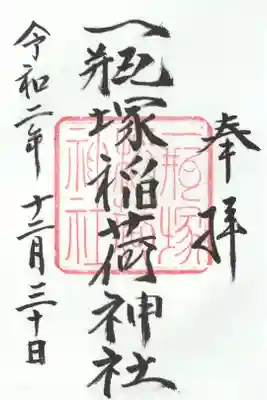 奉拝
一瓶塚稲荷神社
一瓶塚稲荷神社
令和二年 十二月三十日